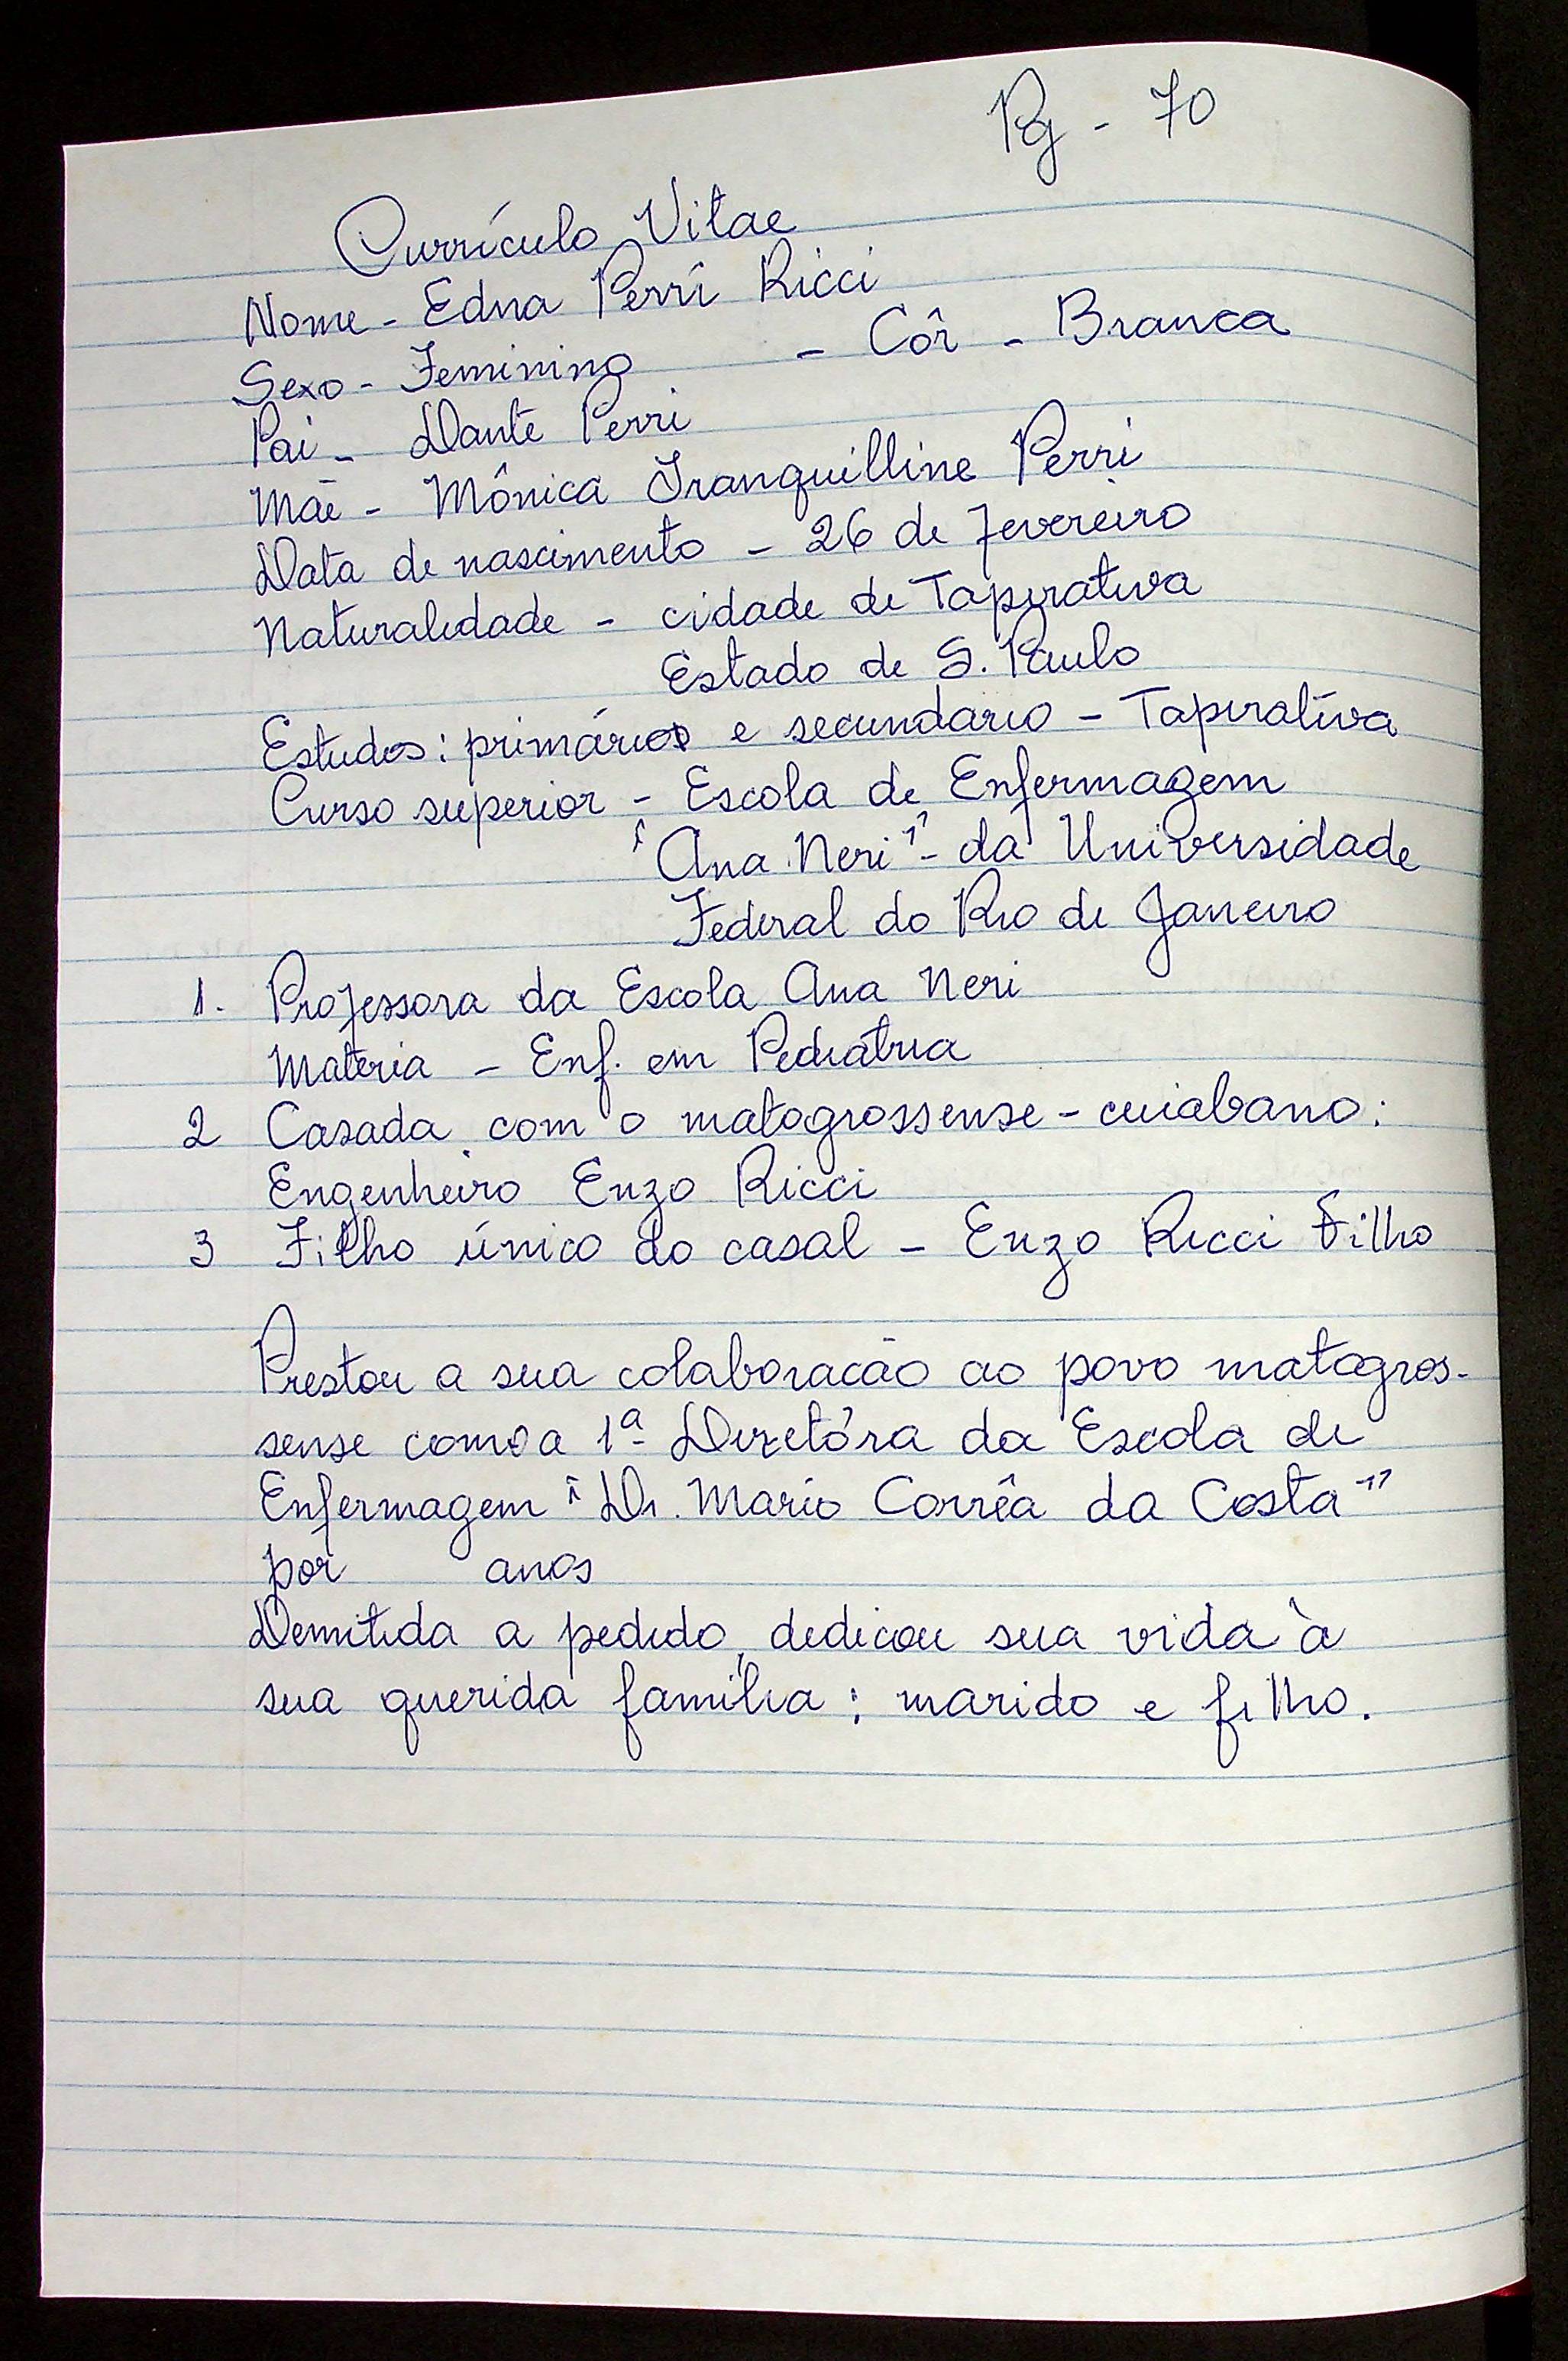 Pg - 70
Currículo Vitae
Nome - Edna Perri Ricci
Sexo - Feminino - Côr - Branca
Pai - Dante Perri
Mãe - Mônica Tranquilline Perri
Data de nascimento - 26 de fevereiro
Naturalidade - cidade de Taperativa
Estado de S. Paulo
Estudos: primários e secundario - Tapirativa
Curso superior - Escola de Enfermagem
"Ana Neri" - da Universidade
Federal do Rio de Janeiro
1. Professora da Escola Ana Neri
Materia - Enf. em Pediatria
2 Casada com o matogrossense - cuiabano:
Engenheiro Enzo Ricci
3 Filho único do casal - Enzo Ricci Filho
Prestou a sua colaboracão ao povo matogros-
sense como a 1ª Diretóra da Escola de
Enfermagem "Dr. Mario Corrêa da Costa"
por anos
Demitida a pedido, dedicou sua vida à
sua querida família: marido e filho.